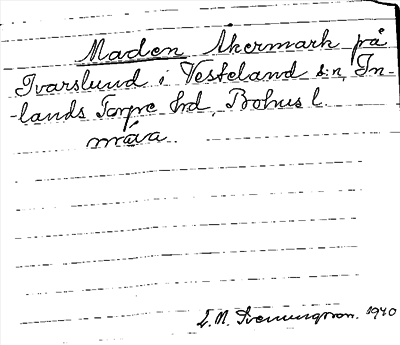 Maden Åkermark på
Ivarslund i Vesteland s:n, In-
-lands Torpe hrd, Bohus l.
måa.
S. M. Svenungsson. 1940